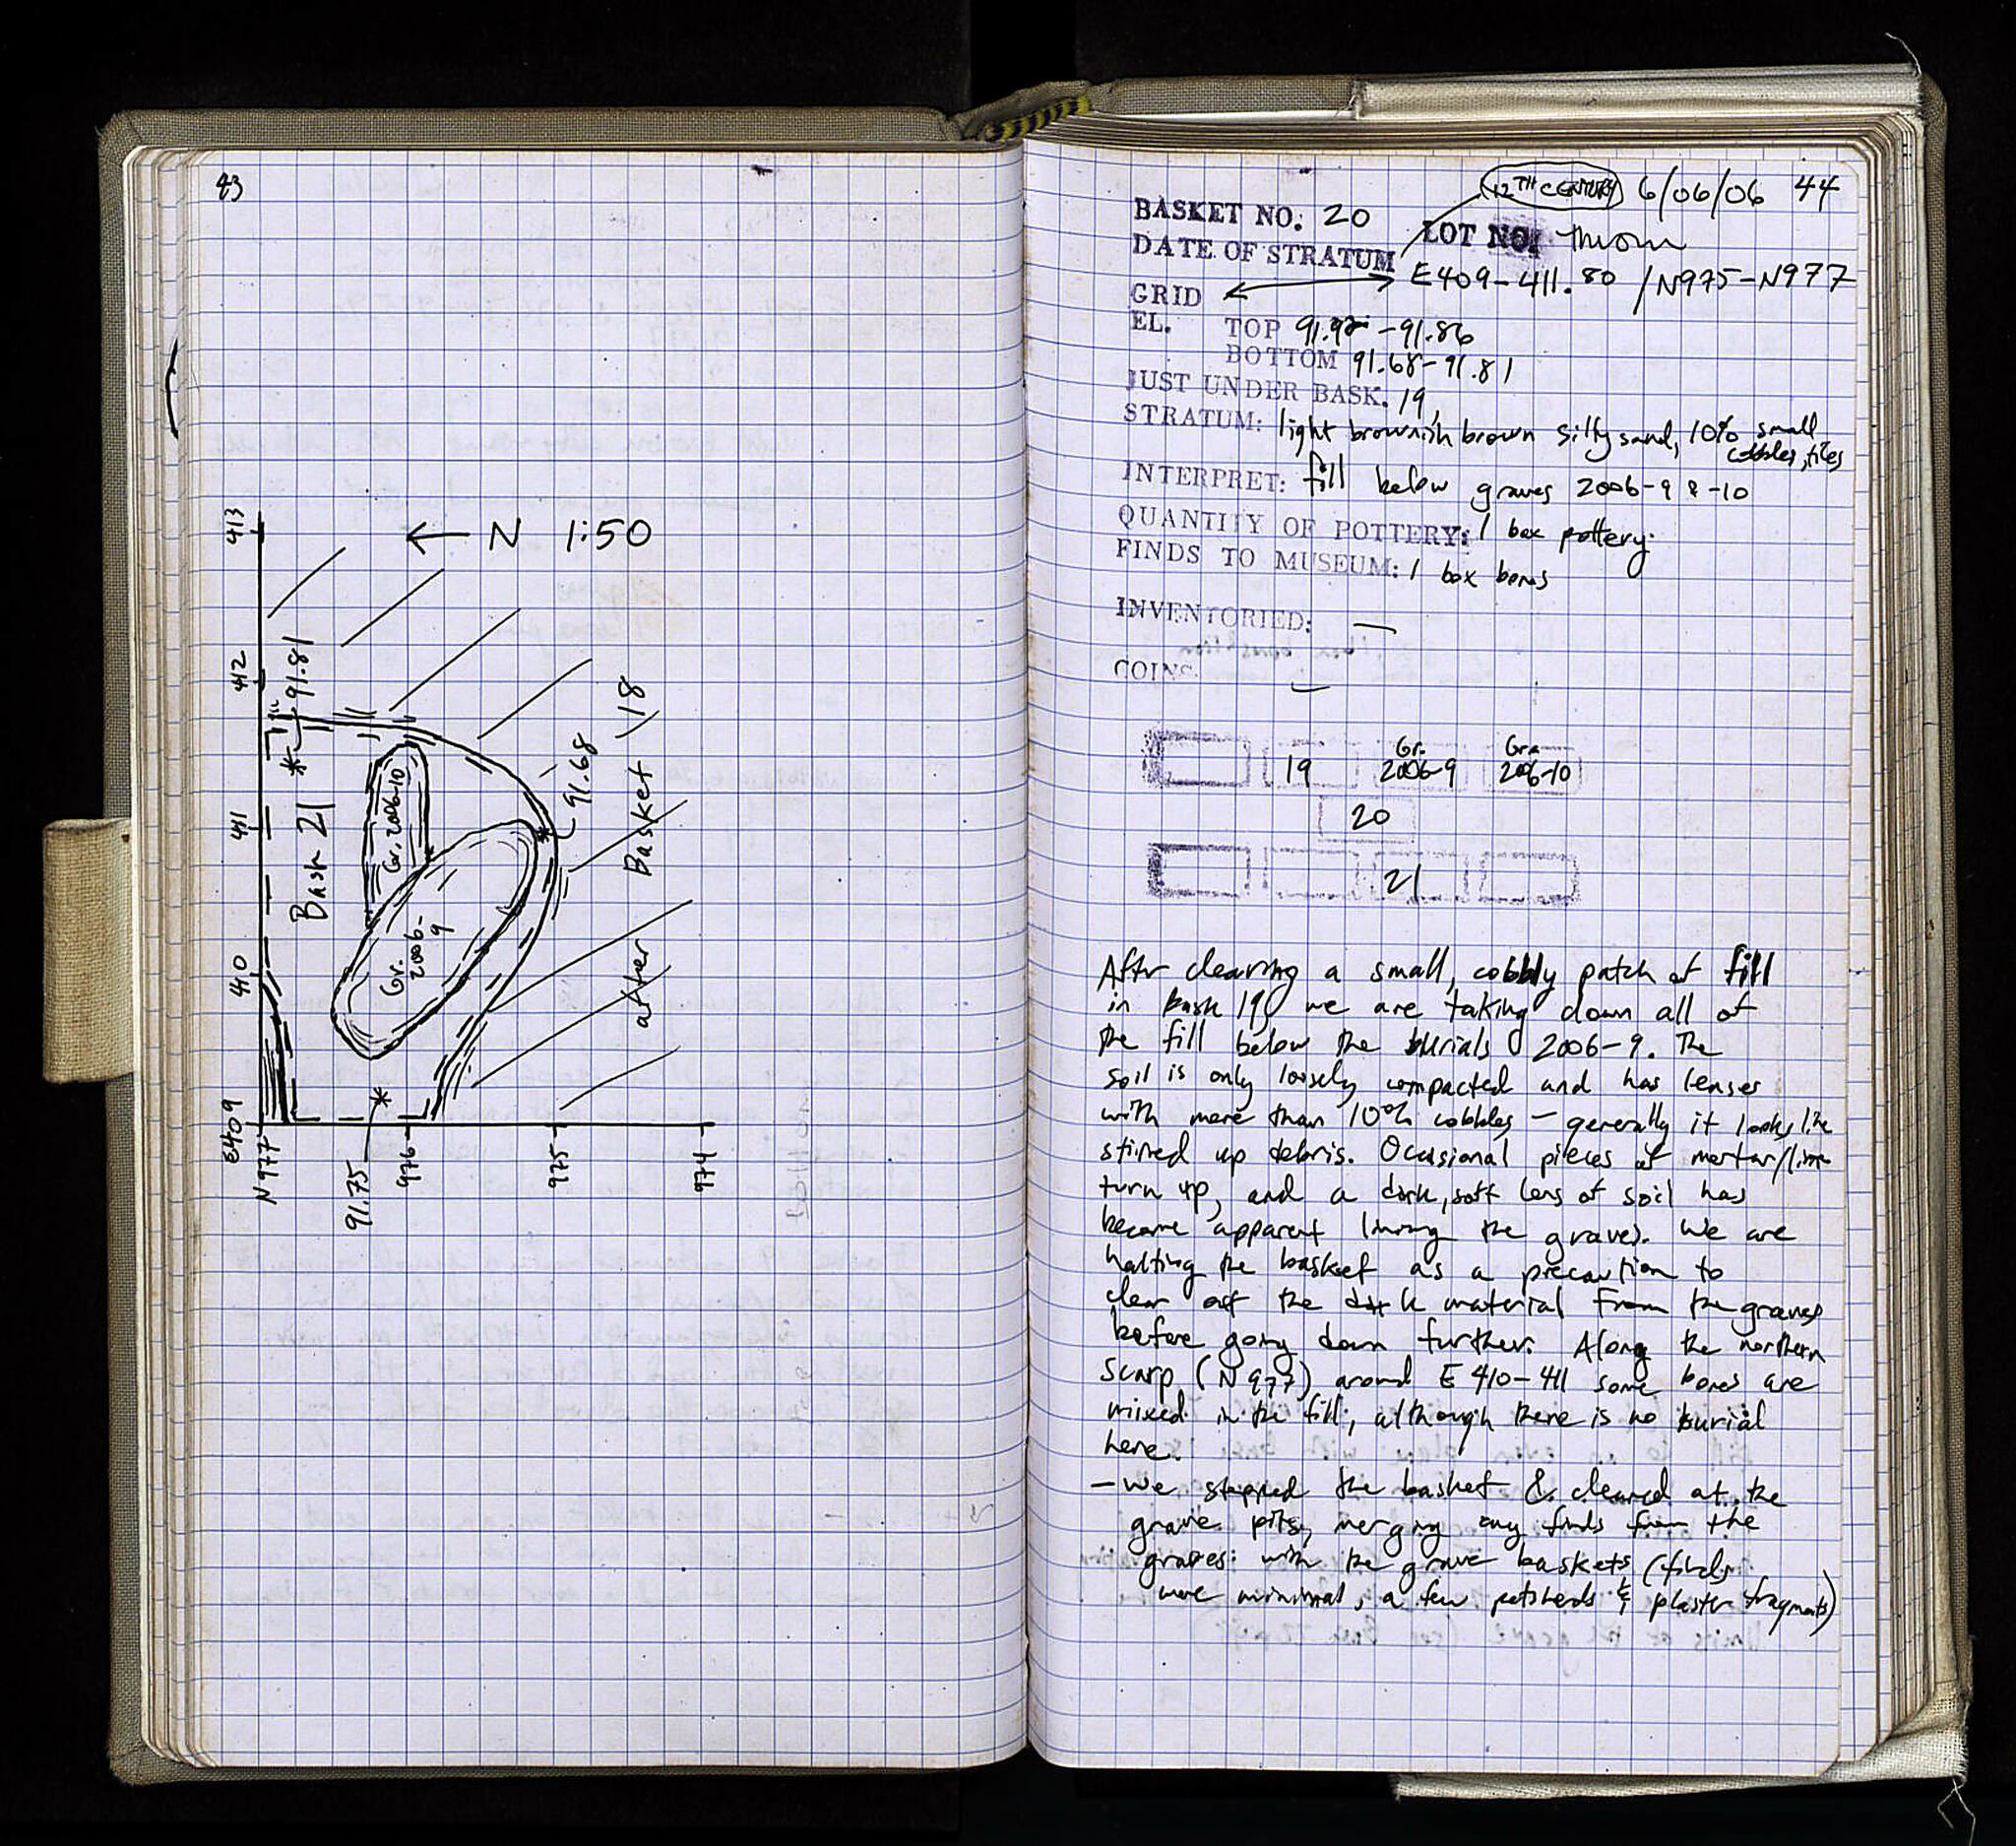 43
413
← N 1:50
412
91.81
411
Bask 21
Gr. 2006-10
91.68
after Basket 18
410
Gr. 2006-
9
E409
N977
91.75
976
975
974
12TH CENTURY 6/06/06 44
BASKET NO: 20
LOT NO: Throm
DATE OF STRATUM
GRID E409-411.80 / N975-N977
EL. TOP 91.92 - 91.86
BOTTOM 91.68-91.81
JUST UNDER BASK. 19,
STRATUM: light brownish brown silty sand, 10% small
cobbles, tiles
INTERPRET: fill below graves 2006-9 & -10
QUANTITY OF POTTERY: 1 box pottery.
FINDS TO MUSEUM: 1 box bones
INVENTORIED: —
COINS: —
19 Gr. 2006-9 Gra 2006-10
20
21
After clearing a small, cobbly patch of fill
in bask 19, we are taking down all of
the fill below the burials 2006-9. The
soil is only loosely compacted and has lenses
with more than 10% cobbles - generally it looks like
stirred up debris. Occasional pieces of mortar/lime
turn up, and a dark, soft lens of soil has
become apparent lining the graves. We are
halting the basket as a precaution to
clear out the dark material from the graves
before going down further. Along the northern
scarp (N977) around E 410-411 some bones are
mixed in the fill, although there is no burial
here.
- We stopped the basket & cleared out the
grave pits, merging any finds from the
graves with the grave baskets (finds
were minimal, a few potsherds & plaster fragments)